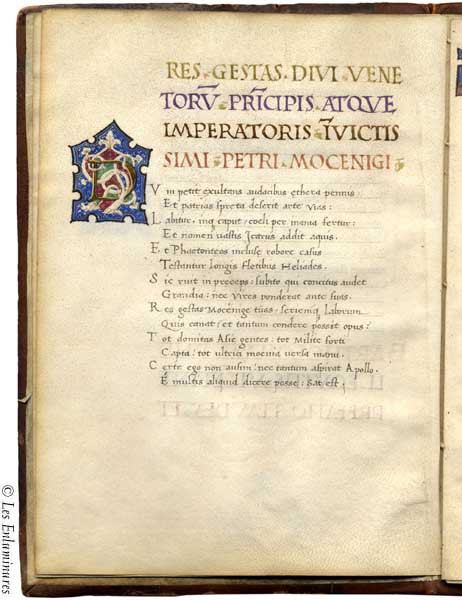 RES · GESTAS · DIVI · VENE
TORV̄ · PRĪCIPIS · ATQVE
IMPERATORIS · ĪVICTIS
SIMI · PETRI · MOCENIGI
D
Vm petit exultans audacibus ethera pennis:
Et patrias spreta deserit arte vias:
Labitur, inq caput coeli per inania fertur:
Et nomen vastis Icarus addit aquis.
Et Phaetonteos incluse robore casus
Testantur longis fletibus Heliades.
Sic ruit in preceps: subito qui concitus audet
Grandia: nec vires ponderat ante suas.
Res gestas Mocenige tuas: seriemq laborum
Quis canat: et tantum condere possit opus:
Tot domitas Asie gentes: tot milite forti
Capta: tot ultrici moenia versa manu.
Certe ego non ausim: nec tantum aspirat Apollo.
E multis aliquid dicere posse: sat est;
© Les Enluminures